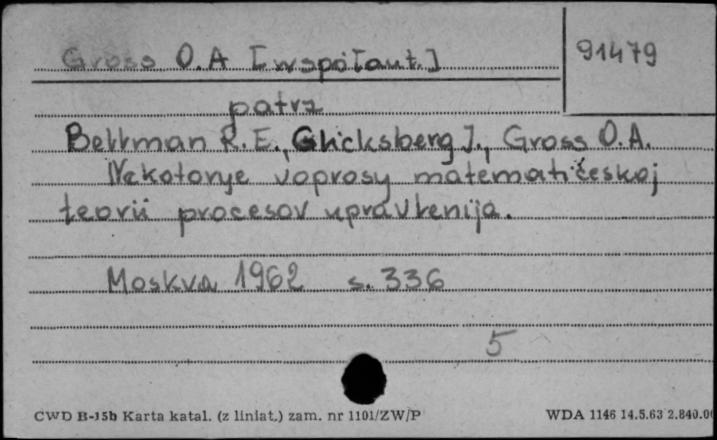 Gross O.A [współaut.]
91479
patrz
Bellman R.E., Glicksberg I., Gross O.A.
Nekotorye voprosy matematičeskoj
teorii procesov upravlenija.
Moskva 1962 s. 336
5
CWD B-15b Karta katal. (z liniat.) zam. nr 1101/ZW/P
WDA 1146 14.5.63 2.840.00